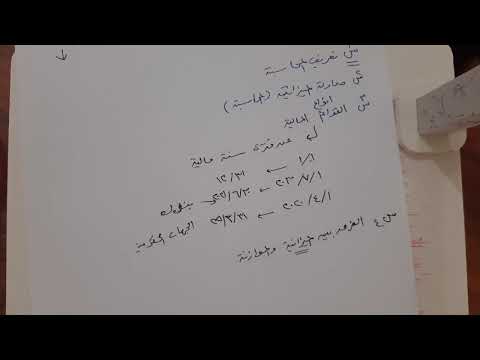 س تعريف المحاسبة
س معادلة الميزانية (المحاسبة)
س انواع القوائم المالية
عن فترة سنة مالية
١/١ ← ١٢/٣١
بنوك
٢٠٢٠/٤/١ ← ٣/٣١ الجهات الحكومية
س٤ الفرق بين الميزانية والموازنة